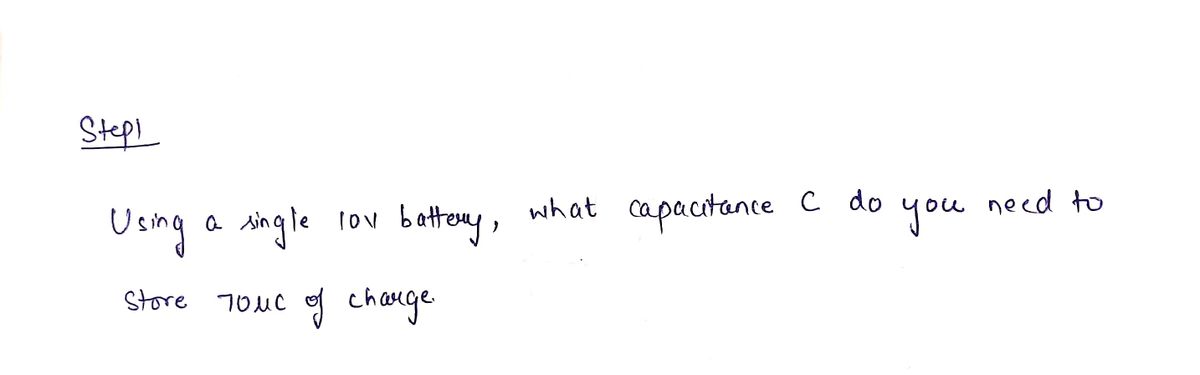 Step1
Using a single 10V battery, what capacitance C do you need to
Store 70μC of charge.